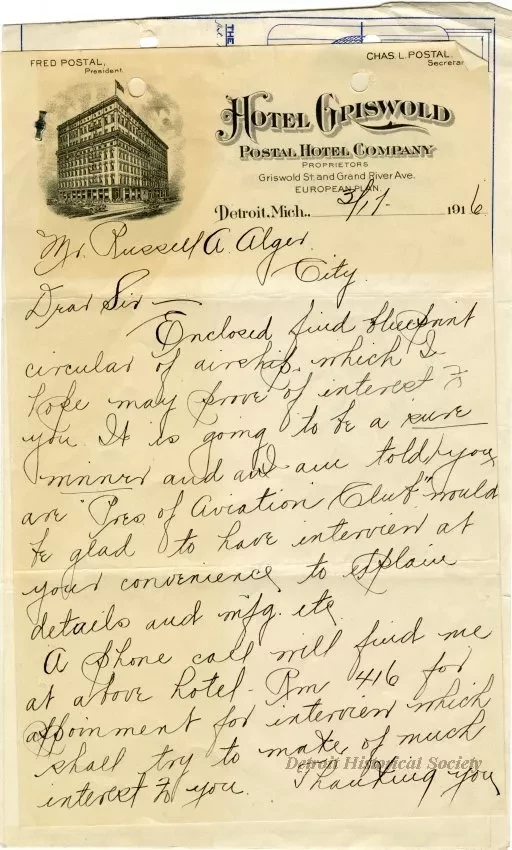 THE
FRED POSTAL,
President.
CHAS. L. POSTAL.
Secretar
HOTEL GRISWOLD
POSTAL HOTEL COMPANY
PROPRIETORS
Griswold St. and Grand River Ave.
EUROPEAN PLAN.
Detroit, Mich., 3/17. 1916
Mr. Russell A. Alger.
City.
Dear Sir —
Enclosed find blueprint
circular of airship which I
hope may prove of interest to
you It is going to be a sure
winner and and am told you
are "Pres of Aviation Club" would
be glad to have interview at
your convenience to explain
details and mfg. etc
A phone call will find me
at above hotel - Rm 416 for
appoinment for interview which
shall try to make of much
interest to you. Thanking you
Detroit Historical Society